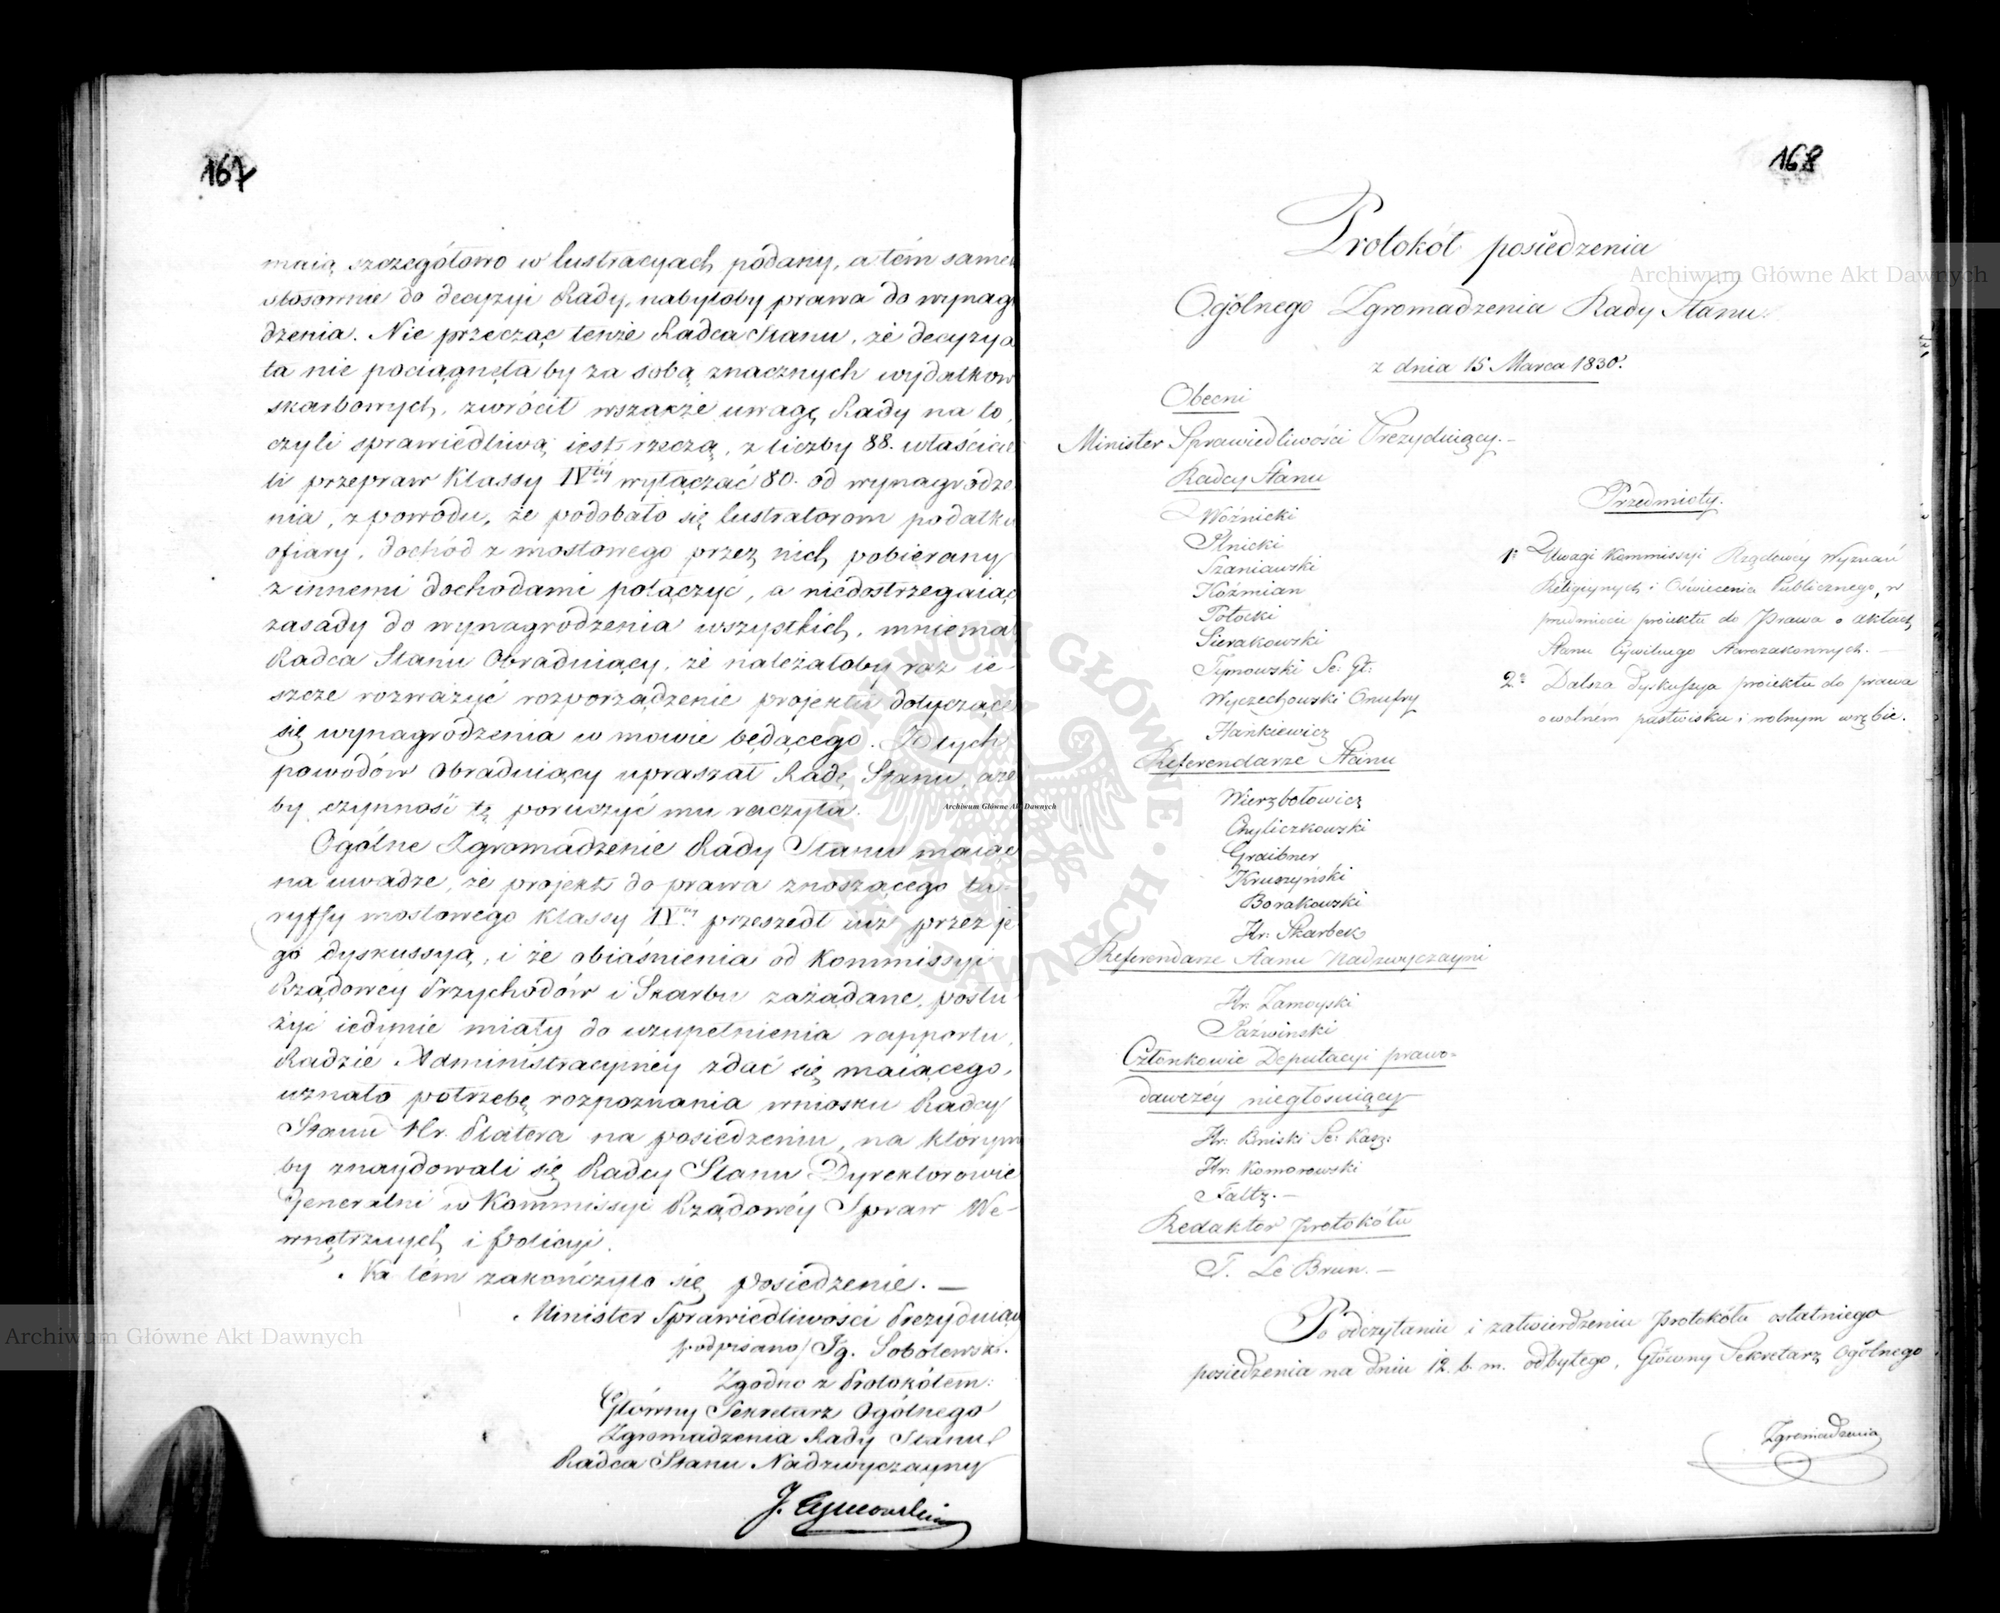 167
maią szczegółowo w lustracyach podany, a tém samém
stosownie do decyzyi Rady, nabyłoby prawa do wynag
dzenia. Nie przecząc tenże Radca Stanu, że decyzya
ta nie pociągnęłaby za sobą znacznych wydatkow
skarbowych, zwrócił wszakże uwagę Rady na to,
czyli sprawiedliwą iest rzeczą, z liczby 88. właścicie
li przepraw Klassy IVtéy wyłączać 80. od wynagrodze
nia, z powodu, że podobało się lustratorom podatku
ofiary, dochód z mostowego przez nich pobierany
z innemi dochodami połączyć, a niedostrzegaiąc
zasady do wynagrodzenia wszystkich, mniema
Radca Stanu Obraduiący, że należałoby raz ie-
szcze rozważyć rozporządzenie projektu dotyczące
się wynagrodzenia w mowie będącego. Z tych
powodów Obraduiący upraszał Radę Stanu, aże
by czynność tę poruczyć mu raczyła.
Ogólne Zgromadzenie Rady Stanu maiąc
na uwadze, że projekt do prawa znoszącego ta-
ryffy mostowego klassy IVéy przeszedł iuż przez je
go dyskussyą, i że obiaśnienia od Kommissyi
Rządowéy Przychodów i Skarbu zażądane, posłu
żyć iedynie miały do uzupełnienia rapportu,
Radzie Administracyinéy zdać się maiącego,
uznało potrzebę rozpoznania wniosku Radcy
Stanu Hr. Platera na posiedzeniu, na którym
by znaydowali się Radcy Stanu Dyrektorowie
Generalni w Kommissyi Rządowéy Spraw We-
wnętrznych i Policyi.
Na tém zakończyło się posiedzenie. —
Minister Sprawiedliwości Prezyduiąc
podpisano/ Ig. Sobolewski.
Zgodno z Protokółem:
Główny Sekretarz Ogólnego
Zgromadzenia Rady Stanu
Radca Stanu Nadzwyczayny
J. Tymowski
168
Protokół posiedzenia
Ogólnego Zgromadzenia Rady Stanu.
z dnia 15 Marca 1830.
Obecni
Minister Sprawiedliwości Prezyduiący. —
Radcy Stanu
Woźnicki
Szaniawski
Koźmian
Potocki
Sierakowski
Tymowski Se: Gł:
Wyczechowski Onufry
Hankiewicz
Referendarze Stanu
Wierzbołowicz
Chyliczkowski
Graibner
Kruszyński
Borakowski
Hr. Skarbek
Referendarze Stanu Nadzwyczayni
Hr. Zamoyski
Paźwinski
Członkowie Deputacyi prawo-
dawczéy niegłosuiący
Hr. Bniski Se: Kasz:
Hr. Komorowski
Faltz. —
Redaktor protokółu
T. Le Brun. —
Przedmioty.
1° Uwagi Kommissyi Rządowéy Wyznań
Religiynych i Oświecenia Publicznego, w
przedmiocie proiektu do Prawa o aktach
Stanu Cywilnego Starozakonnych. —
2° Dalsza dyskussya proiektu do prawa
o wolném pastwisku i wolnym wrębie.
Po odczytaniu i zatwierdzeniu protokółu ostatniego
posiedzenia na dniu 12. b. m. odbytego, Główny Sekretarz Ogólnego
Zgromadzenia
Archiwum Główne Akt Dawnych
Archiwum Główne Akt Dawnych
Archiwum Główne Akt Dawnych
ARCHIWUM GŁÓWNE AKT DAWNYCH